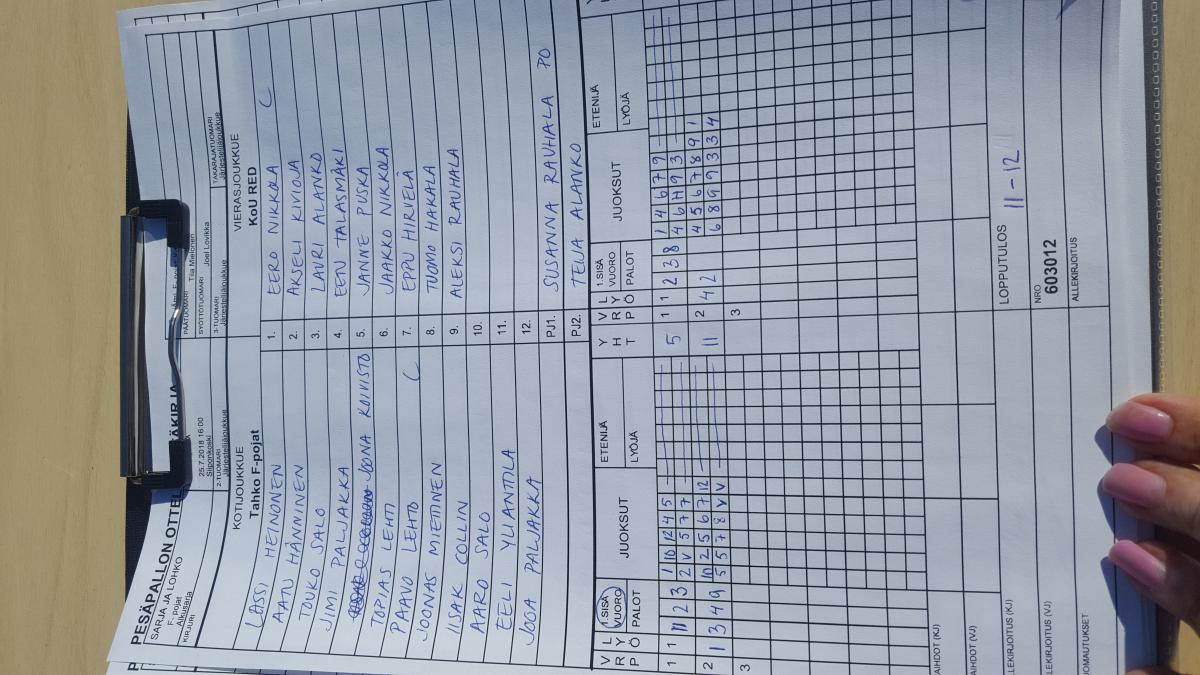 PESÄPALLON OTTEL SÄKIRJA
SARJA JA LOHKO
F- pojat
Alkusarja
KIRJURI
25.7.2018 16:00
Siiponkoski
2-TUOMARI
Järjestelijäjoukkue
PÄÄTUOMARI
Tiia Mielonen
SYÖTTÖTUOMARI
Joel Lovikka
3-TUOMARI
Järjestelijäjoukkue
TAKARAJATUOMARI
Järjestelijäjoukkue
KOTIJOUKKUE
Tahko F-pojat
VIERASJOUKKUE
KoU RED
LASSI HEINONEN 1. EERO NIKKOLA C
AATU HÄNNINEN 2. AKSELI KIVIOJA
TOUKO SALO 3. LAURI ALANKO
JIMI PALJAKKA 4. EETU TALASMÄKI
JOONA KOIVISTO 5. JANNE PUSKA
TOPIAS LEHTI 6. JAAKKO NIKKOLA
PAAVO LEHTO C 7. EPPU HIRVELÄ
JOONAS MIETTINEN 8. TUOMO HAKALA
IISAK COLLIN 9. ALEKSI RAUHALA
AARO SALO 10.
EELI YLIANTILA 11.
JOOA PALJAKKA 12.
PJ1. SUSANNA RAUHALA PO
PJ2. TEIJA ALANKO
V L 1.SISÄ JUOKSUT ETENIJÄ Y V L 1.SISÄ JUOKSUT ETENIJÄ
R Y VUORO LYÖJÄ H R Y VUORO LYÖJÄ
P Ö PALOT T P Ö PALOT
1 1 11 2 3 1 10 12 4 5 5 1 1 2 3 8 1 4 6 7 9
2 V 5 7 7 4 6 H 9 3
2 1 3 4 9 10 2 5 6 7 12 11 2 4 2 4 5 6 7 8 9 1
5 5 7 8 V V 6 8 9 9 3 3 4
3 3
AIHDOT (KJ)
AIHDOT (VJ)
LOPPUTULOS
11-12
LLEKIRJOITUS (KJ)
NRO
603012
LEKIRJOITUS (VJ)
ALLEKIRJOITUS
UOMAUTUKSET